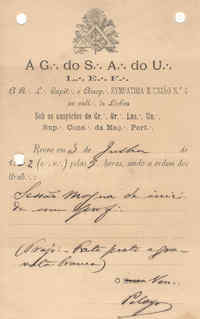 A G∴ do S∴ A∴ do U∴
L∴ E∴ F∴
A R∴ L∴ Capit∴ e Areop∴ SYMPATHIA E UNIÃO N.º 4
ao vall∴ de Lisboa
Sob os auspicios do Gr∴ Or∴ Lus∴ Un∴
Sup∴ Cons∴ da Maç∴ Port∴
Reune em 3 de Julho de
(e∴ v∴) pelas 9 horas, sendo a ordem dos
trab∴
Sessão Magna de inici
de um prof∴
(Trajo: fato preto e gra
vata branca)
O Ven∴